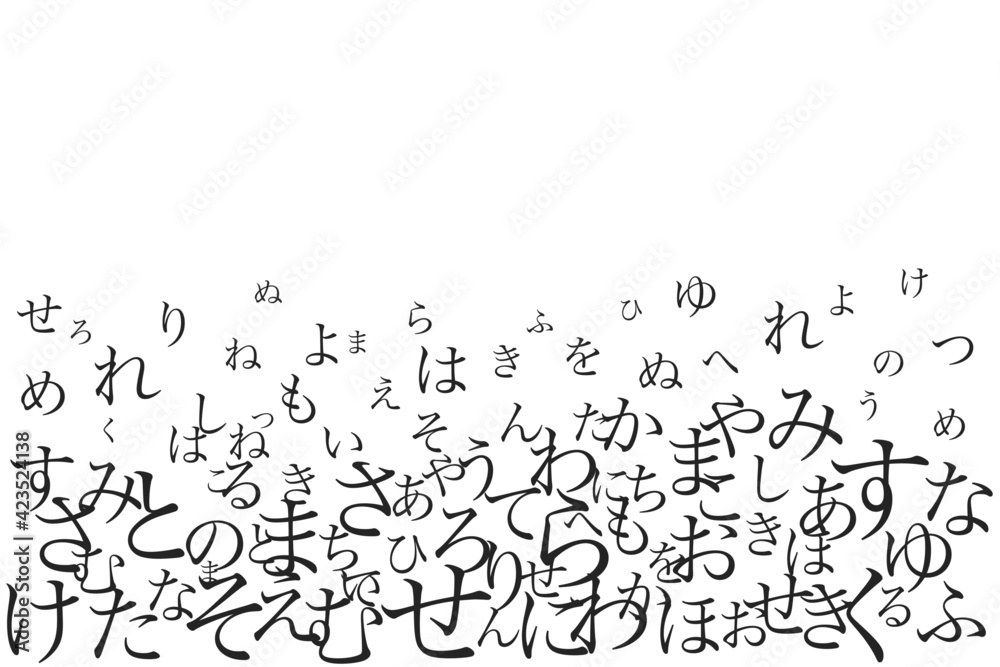 ぬ け
せ ろ り ら ふ ひ ゆ れ よ
れ ね よ ま は き を ぬ へ の つ
め く し も え そ ん た か や み う め
は ね っ い
す み と る き さ あ や う て わ に ち ま こ し あ す な
さ む の ま ち ひ ろ ら へ も を お き は ゆ
け た な ま そ え む で せ り ん せ に わ か ほ お せ き く る ふ
Adobe Stock
Adobe Stock | #423524138